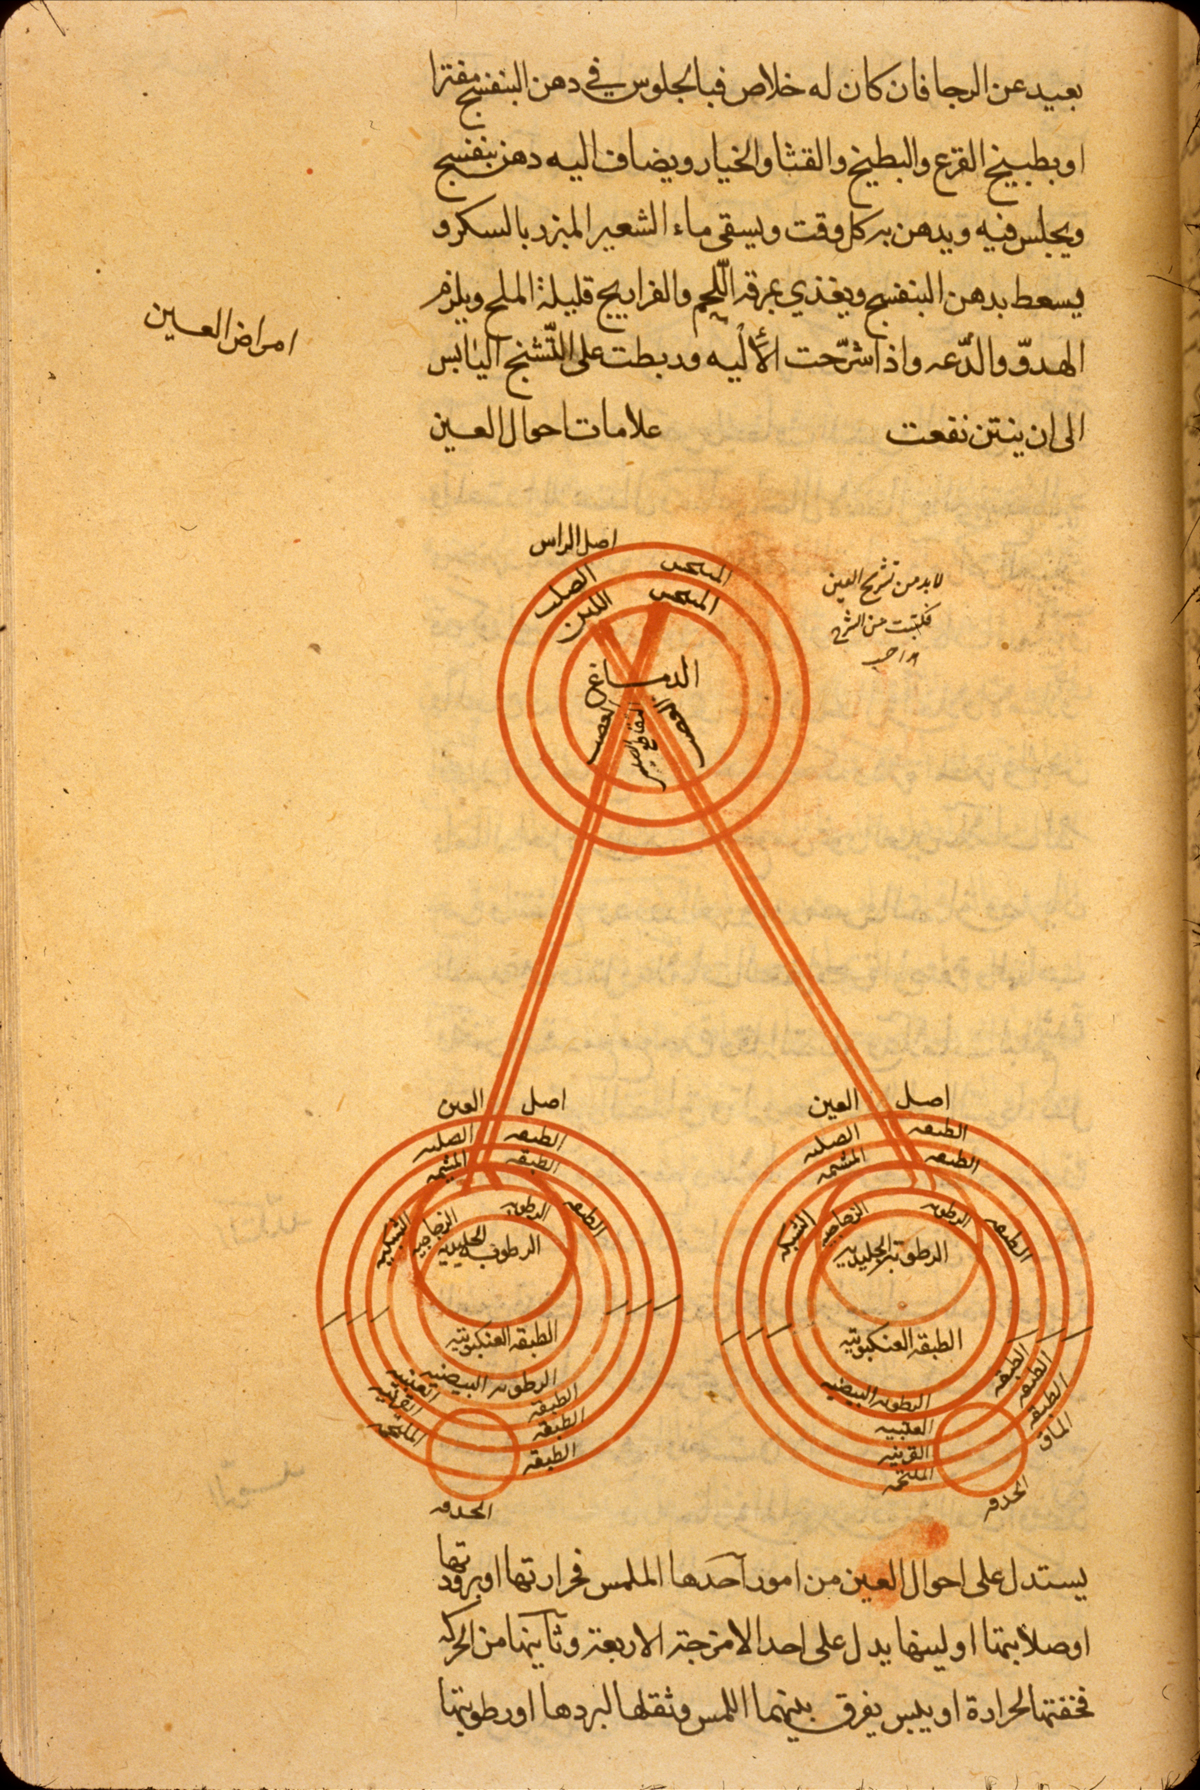 بعيد عن الرجا فان كان له خلاص فبالجلوس في دهن البنفسج مفترا
او بطبيخ القرع والبطيخ والقثا والخيار ويضاف اليه دهن بنفسج
ويجلس فيه ويدهن به كل وقت ويسقى ماء الشعير المبزر بالسكر و
يسعط بدهن البنفسج ويغذي بمرقة اللّحم والفراريج قليلة الملح ويلزم
الهدوّ والدّعه واذا شرّحت الألْيه وربطت على التّشنج اليابس
الى ان ينتن نفعت علامات احوال العين
امراض العين
اصل الراس
الصلب
اللين
لا بد من تشريح العين
فكتبت من الشرح
الدماغ
العصب
التقاطع الصليبي
العصب
اصل العين
الطبقه الصلبه
الطبقه المشيمه
الطبقه الشبكيه
الرطوبه الزجاجيه
الرطوبة الجليديه
الطبقه العنكبوتيه
الرطوبه البيضيه
الطبقه العنبيه
الطبقه القرنيه
الطبقه الملتحمه
الماق
الحدقه
اصل العين
الطبقه الصلبه
الطبقه المشيمه
الطبقه الشبكيه
الرطوبه الزجاجيه
الرطوبه الجليديه
الطبقه العنكبوتيه
الرطوبه البيضيه
الطبقه العنبيه
الطبقه القرنيه
الطبقه الملتحمه
الحدقه
يستدل على احوال العين من امور احدها الملمس فحرارتها او برودتها
او صلابتها او لينها يدل على احد الامزجة الاربعة وثانيها من الحركه
فخفتها لحرارة او يبس يفرق بينهما اللمس وثقلها لبردها او رطوبتها